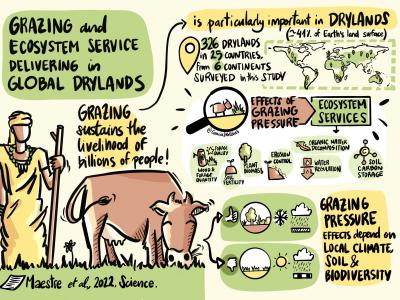 GRAZING and
ECOSYSTEM SERVICE
DELIVERING in
GLOBAL DRYLANDS
is particularly important in DRYLANDS
(~41% of Earth's land surface)
326 DRYLANDS
in 25 COUNTRIES,
from 6 CONTINENTS
SURVEYED in this STUDY
GRAZING
sustains the
livelihood of
billions of people!
EFFECTS of
GRAZING
PRESSURE
ECOSYSTEM
SERVICES
FORAGE
QUALITY
WOOD &
FORAGE
QUANTITY
SOIL
FERTILITY
PLANT
BIOMASS
EROSION
CONTROL
ORGANIC MATTER
DECOMPOSITION
WATER
REGULATION
SOIL
CARBON
STORAGE
GRAZING
PRESSURE
EFFECTS depend on
LOCAL CLIMATE,
SOIL &
BIODIVERSITY
Maestre et al, 2022. Science.